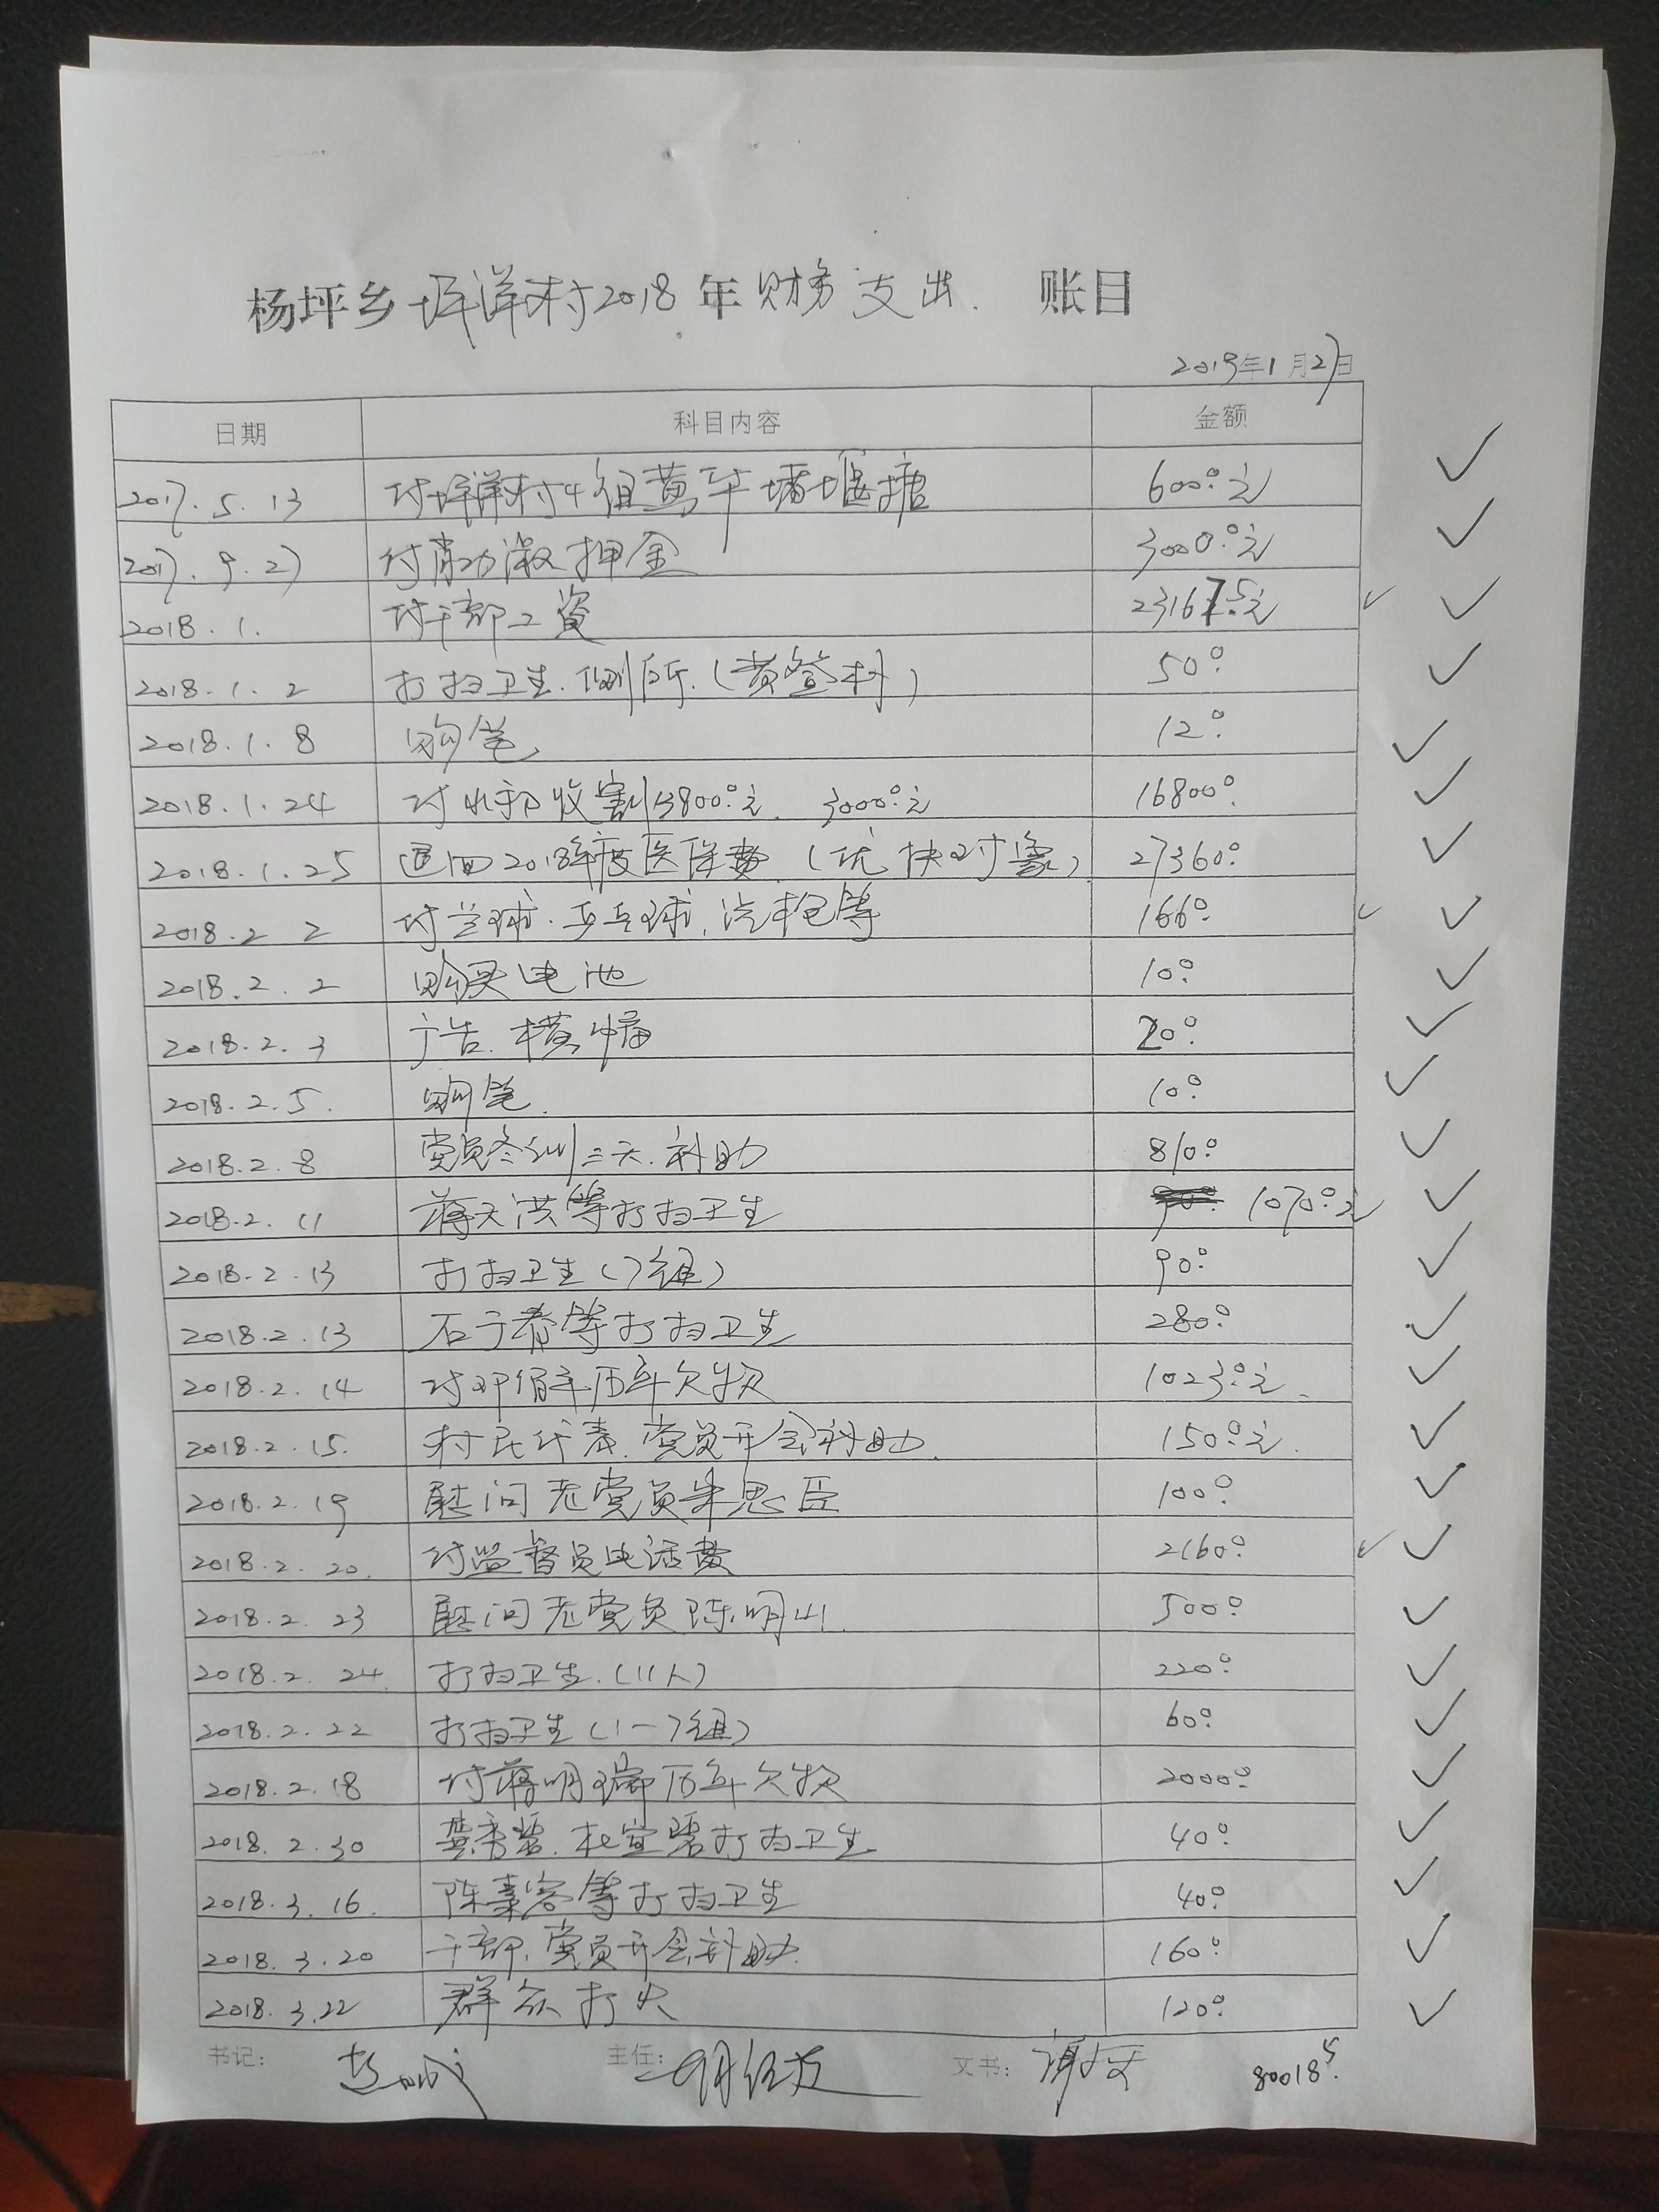 杨坪乡坪洋村2018年财务支出 账目
2019年1月27日
日期 科目内容 金额
2017.5.13 付坪洋村4组黄平堵堰塘 600.0元
2017.9.27 付肖功淑押金 3000.0元
2018.1. 付干部工资 23167.5元
2018.1.2 打扫卫生.厕所.(黄登村) 50.0
2018.1.8 购笔 12.0
2018.1.24 付水稻收割13800.0元. 3000.0元 16800.0
2018.1.25 退回2018年度医保费(优抚对象) 27360.0
2018.2 2 付兰球.乒乓球,汽枪等 166.0
2018.2.2 购买电池 10.0
2018.2.3 广告.横幅 20.0
2018.2.5. 购笔. 10.0
2018.2.8 党员冬训三天.补助 810.0
2018.2.11 蒋天洪等打扫卫生 1070.0元
2018.2.13 打扫卫生(7组) 90.0
2018.2.13 石于春等打扫卫生 280.0
2018.2.14 付邓 历年欠款 1023.0元.
2018.2.15. 村民代表.党员开会补助. 150.0元.
2018.2.19 慰问老党员朱思臣 100.0
2018.2.20. 付监督员电话费 2160.0
2018.2.23 慰问老党员陈明山. 500.0
2018.2.24. 打扫卫生.(11人) 220.0
2018.2.22 打扫卫生(1—7组) 60.0
2018.2.18 付蒋明瑞历年欠款 2000.0
2018.2.30 打扫卫生. 40.0
2018.3.16. 陈 容等打扫卫生 40.0
2018.3.20 干部.党员开会补助. 160.0
2018.3.22 群众打火 120.0
书记: 主任: 文书: 80018.5